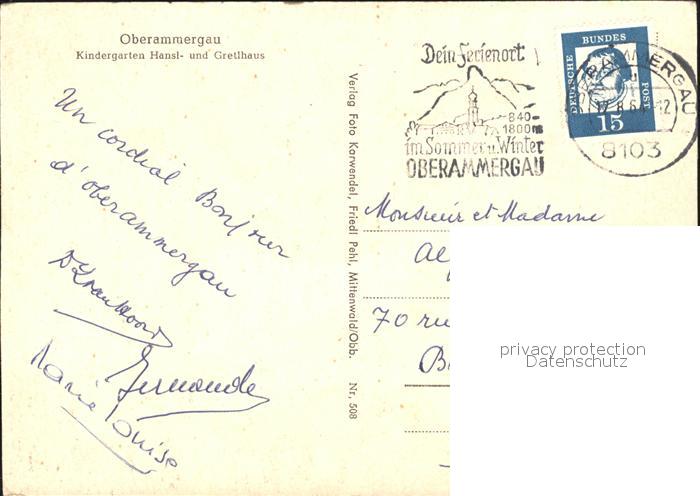 Oberammergau
Kindergarten Hansl- und Gretlhaus
Un cordial Bonjour
d'Oberammergau
Fernande
Marie Louise
Verlag Foto Karwendel, Friedl Pehl, Mittenwald/Obb. Nr. 508
Dein Ferienort
840-
1800m
im Sommer u. Winter
OBERAMMERGAU
DEUTSCHE BUNDES POST
15
OBERAMMERGAU
8103
Monsieur et Madame
70 rue
privacy protection
Datenschutz